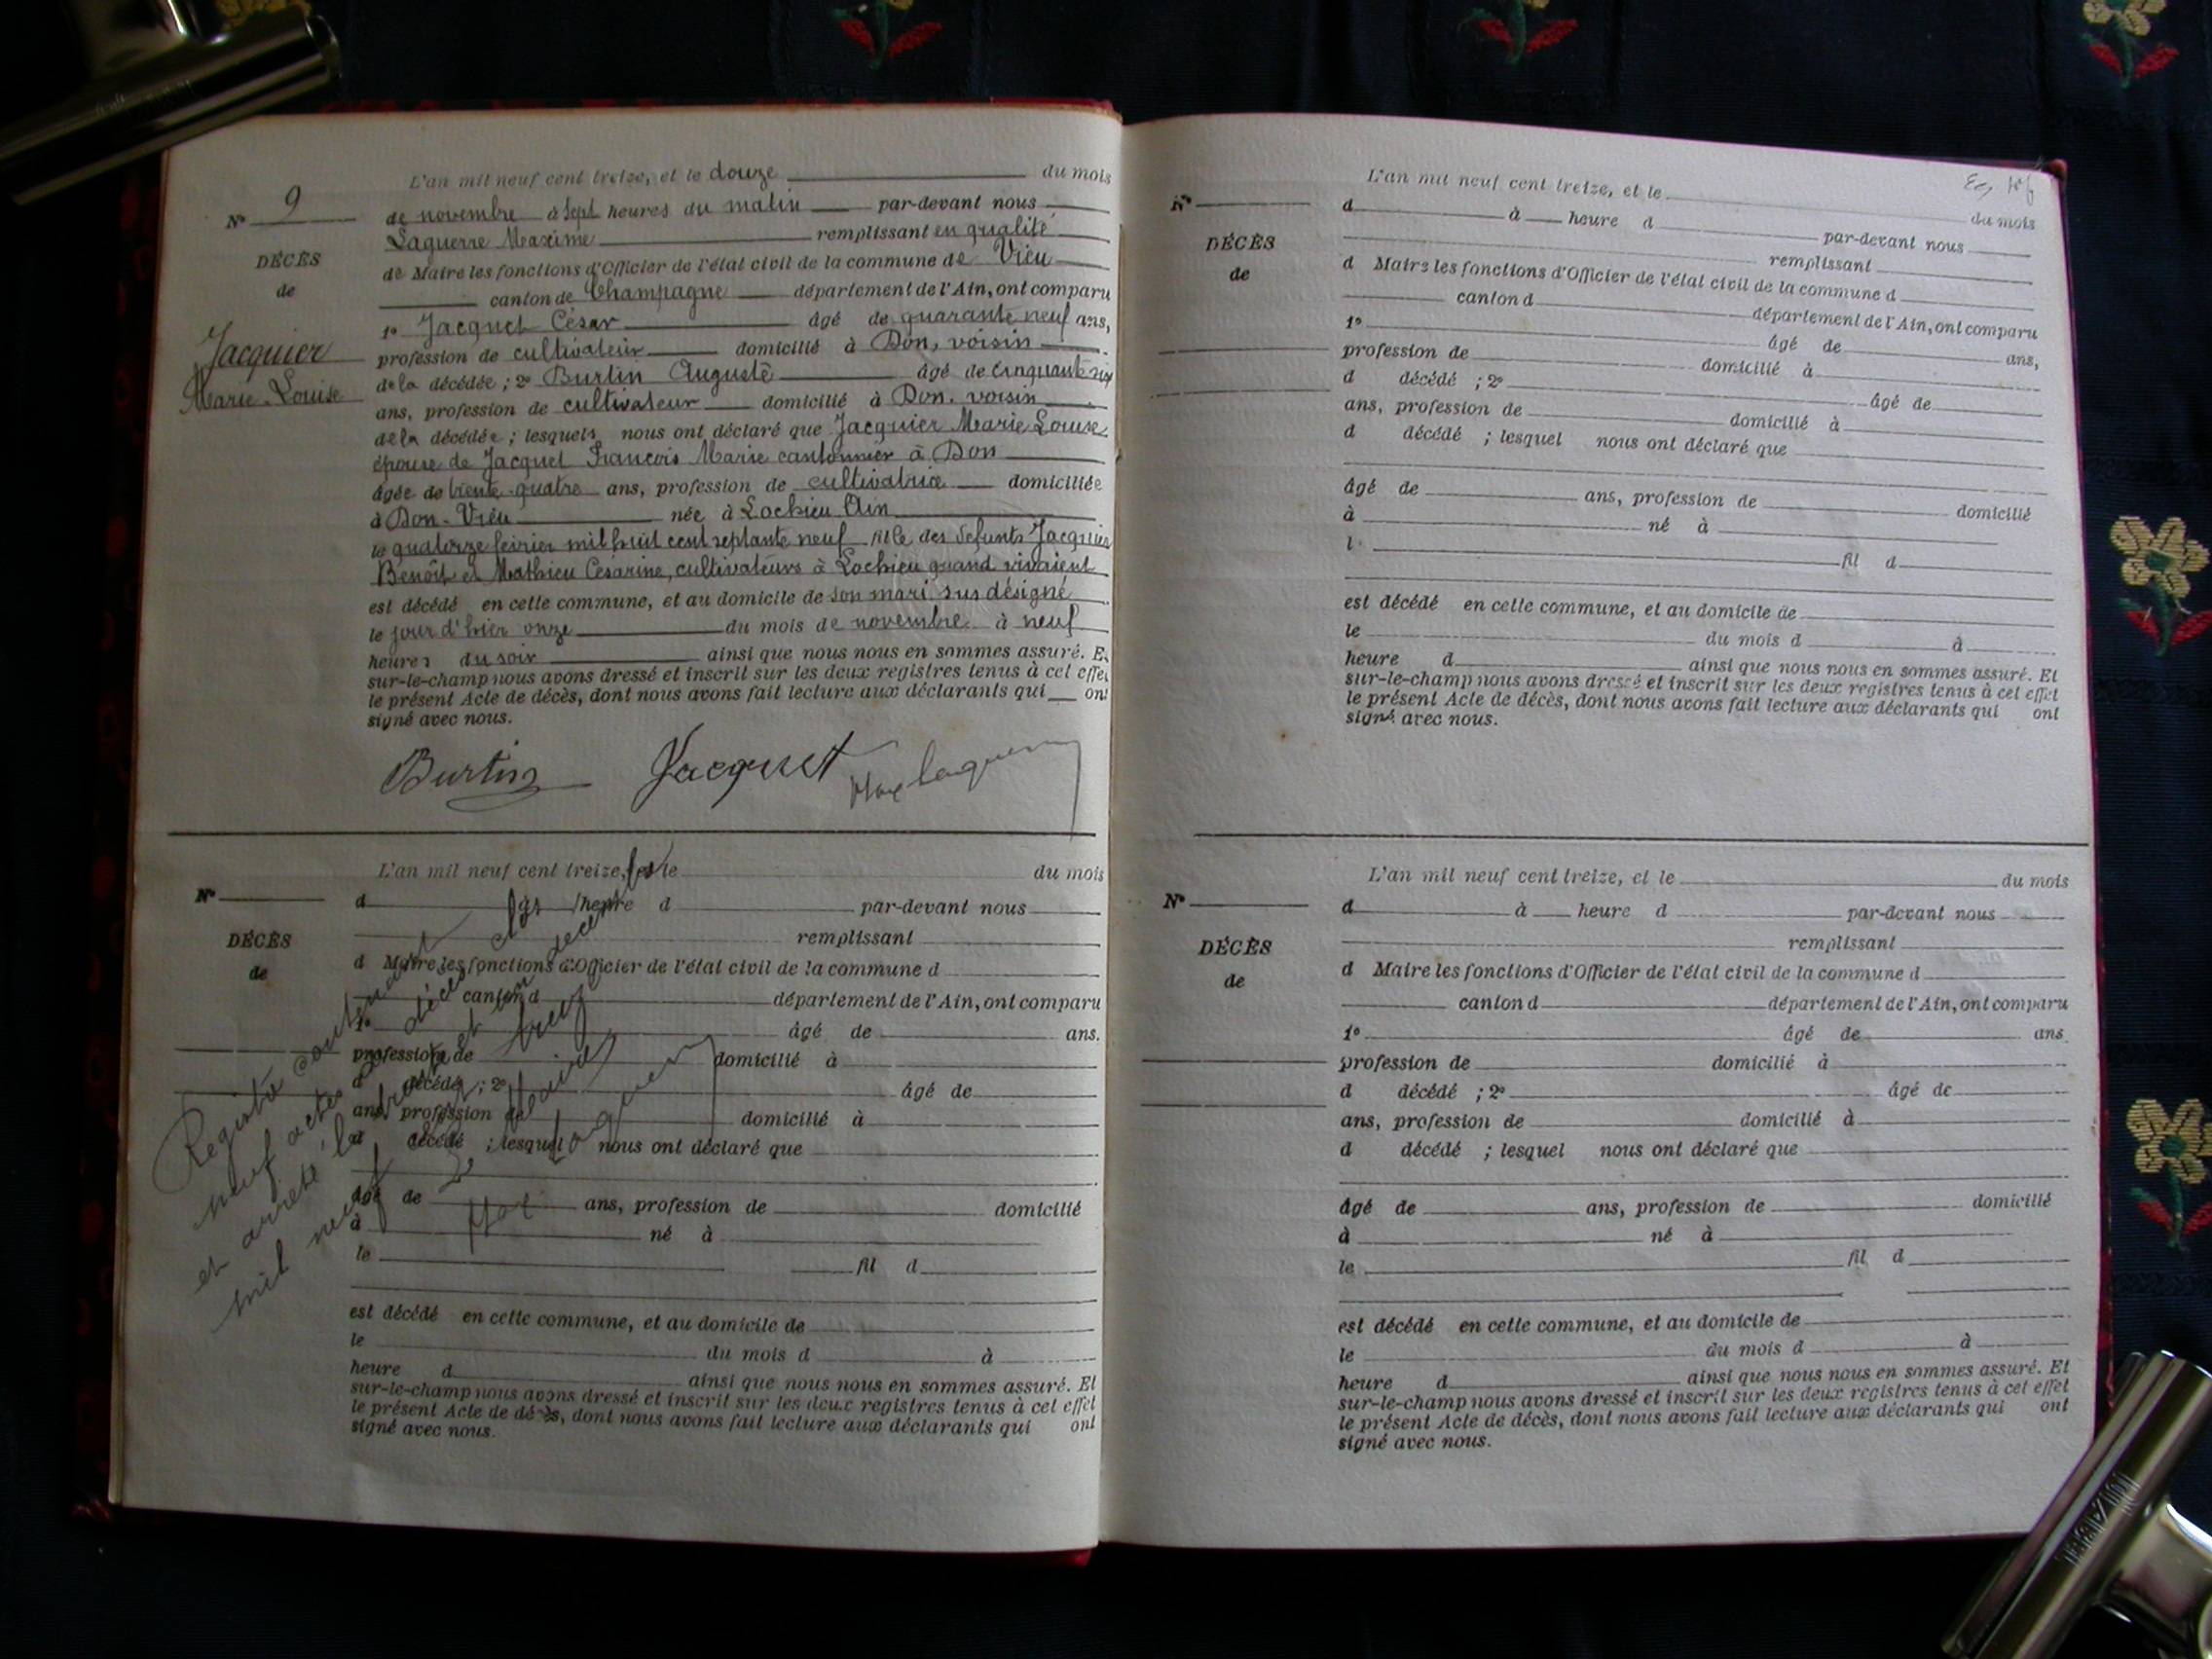 L'an mil neuf cent treize, et le douze du mois
N° 9
de novembre à sept heures du matin par-devant nous
Laguerre Maxime remplissant en qualité
DÉCÈS
de Maire les fonctions d'Officier de l'état civil de la commune de Vieu
de
canton de Champagne département de l'Ain, ont comparu
1° Jacquet César âgé de quarante neuf ans,
Jacquier
profession de cultivateur domicilié à Don, voisin
Marie-Louise
de la décédée ; 2° Burtin Auguste âgé de cinquante six
ans, profession de cultivateur domicilié à Don. voisin
de la décédée ; lesquels nous ont déclaré que Jacquier Marie Louise
épouse de Jacquet François Marie cantonnier à Don
âgée de trente-quatre ans, profession de cultivatrice domiciliée
à Don-Vieu née à Lochieu Ain
le quatorze février mil huit cent septante neuf fille des défunts Jacquier
Benoît et Mathieu Césarine, cultivateurs à Lochieu quand vivaient
est décédé en cette commune, et au domicile de son mari sus désigné
le jour d'hier onze du mois de novembre à neuf
heures du soir ainsi que nous nous en sommes assuré. Et
sur-le-champ nous avons dressé et inscrit sur les deux registres tenus à cet effet
le présent Acte de décès, dont nous avons fait lecture aux déclarants qui ont
signé avec nous.
Burtin Jacquet Max Laguerre
L'an mil neuf cent treize, et le du mois
N°
d à heure d par-devant nous
remplissant
DÉCÈS
d Maire les fonctions d'Officier de l'état civil de la commune d
de
canton d département de l'Ain, ont comparu
1° âgé de ans.
profession de domicilié à
d décédé ; 2° âgé de
ans, profession de domicilié à
d décédé ; lesquel nous ont déclaré que
âgé de ans, profession de domicilié
à né à
le fil d
est décédé en cette commune, et au domicile de
le du mois d à
heure d ainsi que nous nous en sommes assuré. Et
sur-le-champ nous avons dressé et inscrit sur les deux registres tenus à cet effet
le présent Acte de décès, dont nous avons fait lecture aux déclarants qui ont
signé avec nous.
Registre contenant
neuf actes de décès clos
et arrêté le trente et un décembre
mil neuf cent treize
Le Maire
Max Laguerre
L'an mil neuf cent treize, et le du mois
N°
d à heure d par-devant nous
remplissant
DÉCÈS
d Maire les fonctions d'Officier de l'état civil de la commune d
de
canton d département de l'Ain, ont comparu
1° âgé de ans,
profession de domicilié à
d décédé ; 2° âgé de
ans, profession de domicilié à
d décédé ; lesquel nous ont déclaré que
âgé de ans, profession de domicilié
à né à
l fil d
est décédé en cette commune, et au domicile de
le du mois d à
heure d ainsi que nous nous en sommes assuré. Et
sur-le-champ nous avons dressé et inscrit sur les deux registres tenus à cet effet
le présent Acte de décès, dont nous avons fait lecture aux déclarants qui ont
signé avec nous.
L'an mil neuf cent treize, et le du mois
N°
d à heure d par-devant nous
remplissant
DÉCÈS
d Maire les fonctions d'Officier de l'état civil de la commune d
de
canton d département de l'Ain, ont comparu
1° âgé de ans
profession de domicilié à
d décédé ; 2° âgé de
ans, profession de domicilié à
d décédé ; lesquel nous ont déclaré que
âgé de ans, profession de domicilié
à né à
le fil d
est décédé en cette commune, et au domicile de
le du mois d à
heure d ainsi que nous nous en sommes assuré. Et
sur-le-champ nous avons dressé et inscrit sur les deux registres tenus à cet effet
le présent Acte de décès, dont nous avons fait lecture aux déclarants qui ont
signé avec nous.